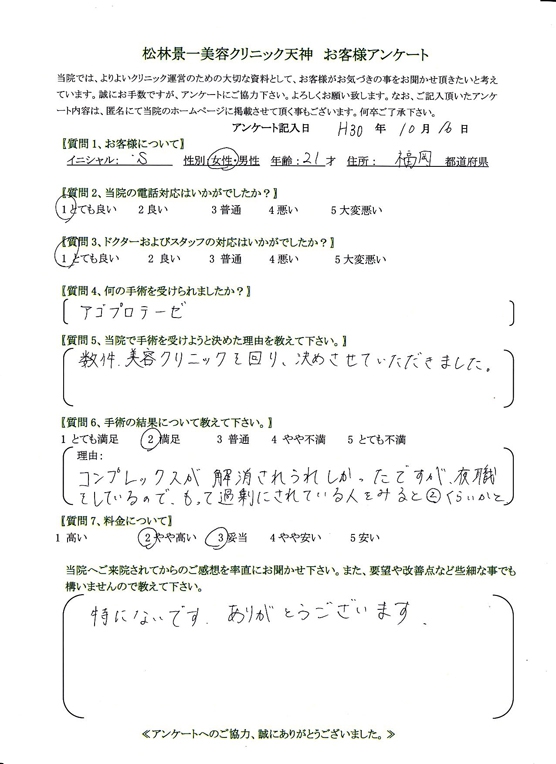 松林景一美容クリニック天神　お客様アンケート
当院では、よりよいクリニック運営のための大切な資料として、お客様がお気づきの事をお聞かせ頂きたいと考え
ています。誠にお手数ですが、アンケートにご協力下さい。よろしくお願い致します。なお、ご記入頂いたアンケ
ート内容は、匿名にて当院のホームページに掲載させて頂く事もございます。何卒ご了承下さい。
アンケート記入日　H30 年 10 月 16 日
【質問1、お客様について】
イニシャル: S　性別:女性・男性　年齢:21才　住所: 福岡 都道府県
【質問2、当院の電話対応はいかがでしたか?】
1とても良い　2 良い　3 普通　4 悪い　5 大変悪い
【質問3、ドクターおよびスタッフの対応はいかがでしたか?】
1とても良い　2 良い　3 普通　4 悪い　5 大変悪い
【質問4、何の手術を受けられましたか?】
アゴプロテーゼ
【質問5、当院で手術を受けようと決めた理由を教えて下さい。】
数件、美容クリニックを回り、決めさせていただきました。
【質問6、手術の結果について教えて下さい。】
1 とても満足　2 満足　3 普通　4 やや不満　5 とても不満
理由:
コンプレックスが解消されうれしかったですが、夜職
をしているので、もって過剰にされている人をみると②くらいかと
【質問7、料金について】
1 高い　2 やや高い　3 妥当　4 やや安い　5 安い
当院へご来院されてからのご感想を率直にお聞かせ下さい。また、要望や改善点など些細な事でも
構いませんので教えて下さい。
特にないです。ありがとうございます。
≪アンケートへのご協力、誠にありがとうございました。≫